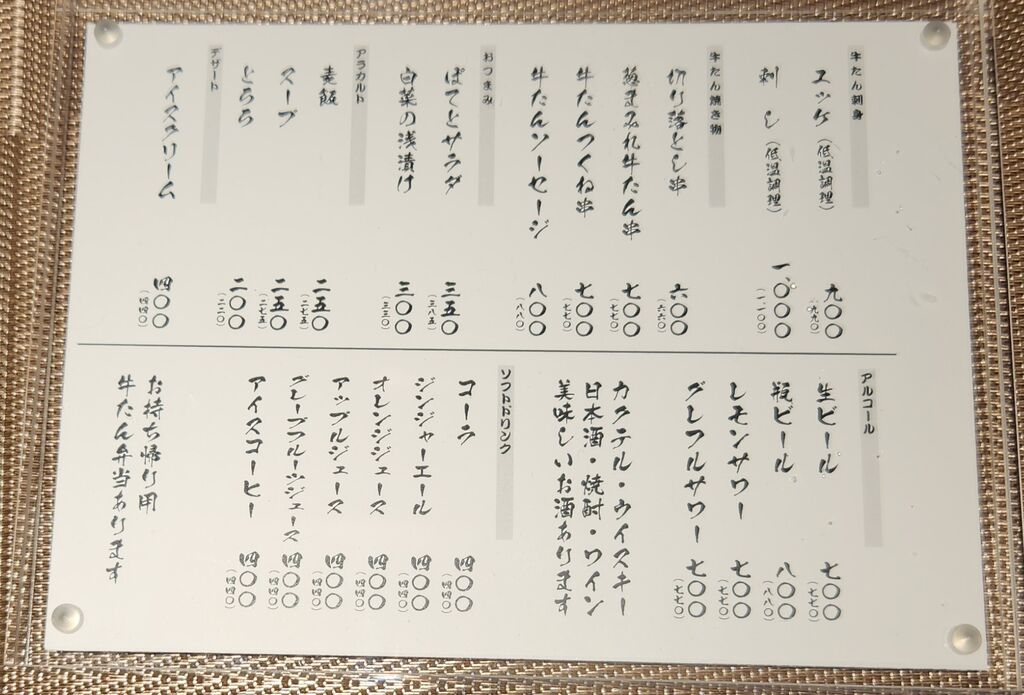 牛たん刺身
ユッケ（低温調理） 九〇〇（九九〇）
刺し（低温調理） 一、〇〇〇（一、一〇〇）
牛たん焼き物
切り落とし串 六〇〇（六六〇）
葱まみれ牛たん串 七〇〇（七七〇）
牛たんつくね串 七〇〇（七七〇）
牛たんソーセージ 八〇〇（八八〇）
おつまみ
ぽてとサラダ 三五〇（三八五）
白菜の浅漬け 三〇〇（三三〇）
アラカルト
麦飯 二五〇（二七五）
スープ 二五〇（二七五）
とろろ 二〇〇（二二〇）
デザート
アイスクリーム 四〇〇（四四〇）
アルコール
生ビール 七〇〇（七七〇）
瓶ビール 八〇〇（八八〇）
レモンサワー 七〇〇（七七〇）
グレフルサワー 七〇〇（七七〇）
カクテル・ウイスキー
日本酒・焼酎・ワイン
美味しいお酒あります
ソフトドリンク
コーラ 四〇〇（四四〇）
ジンジャーエール 四〇〇（四四〇）
オレンジジュース 四〇〇（四四〇）
アップルジュース 四〇〇（四四〇）
グレープフルーツジュース 四〇〇（四四〇）
アイスコーヒー 四〇〇（四四〇）
お持ち帰り用
牛たん弁当あります